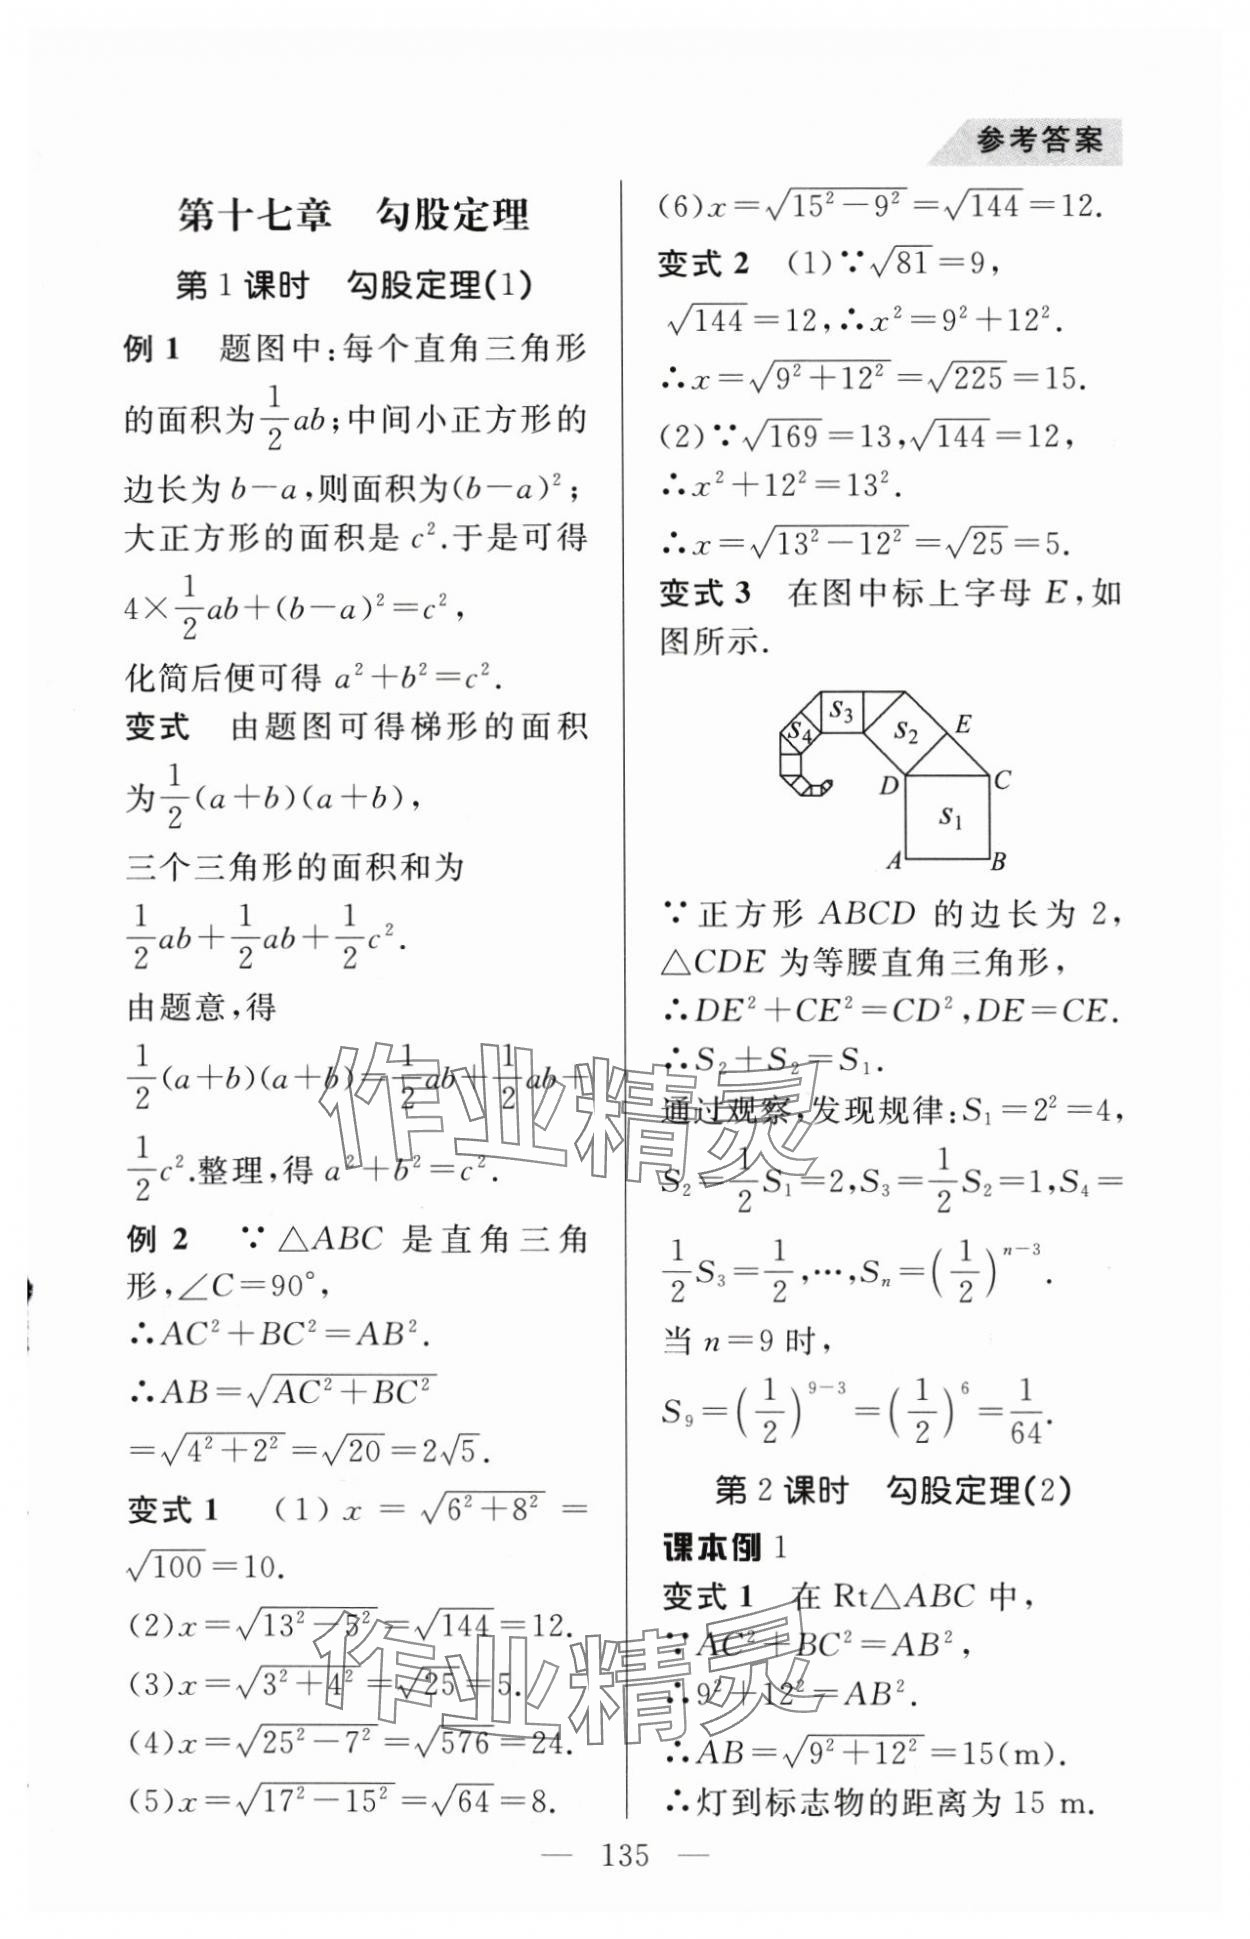 参考答案
第十七章 勾股定理
第1课时 勾股定理(1)
例1 题图中:每个直角三角形
的面积为1/2 ab;中间小正方形的
边长为b-a,则面积为(b-a)²;
大正方形的面积是c².于是可得
4×1/2 ab+(b-a)²=c²,
化简后便可得a²+b²=c².
变式 由题图可得梯形的面积
为1/2(a+b)(a+b),
三个三角形的面积和为
1/2 ab+1/2 ab+1/2 c².
由题意,得
1/2(a+b)(a+b)=1/2 ab+1/2 ab+
1/2 c².整理,得a²+b²=c².
例2 ∵△ABC是直角三角
形,∠C=90°,
∴AC²+BC²=AB².
∴AB=√(AC²+BC²)
=√(4²+2²)=√20=2√5.
变式1 (1)x=√(6²+8²)=
√100=10.
(2)x=√(13²-5²)=√144=12.
(3)x=√(3²+4²)=√25=5.
(4)x=√(25²-7²)=√576=24.
(5)x=√(17²-15²)=√64=8.
(6)x=√(15²-9²)=√144=12.
变式2 (1)∵√81=9,
√144=12,∴x²=9²+12².
∴x=√(9²+12²)=√225=15.
(2)∵√169=13,√144=12,
∴x²+12²=13².
∴x=√(13²-12²)=√25=5.
变式3 在图中标上字母E,如
图所示.
S₃
S₄ S₂ E
D C
S₁
A B
∵正方形ABCD的边长为2,
△CDE为等腰直角三角形,
∴DE²+CE²=CD²,DE=CE.
∴S₂+S₂=S₁.
通过观察,发现规律:S₁=2²=4,
S₂=1/2 S₁=2,S₃=1/2 S₂=1,S₄=
1/2 S₃=1/2,…,Sₙ=(1/2)ⁿ⁻³.
当n=9时,
S₉=(1/2)⁹⁻³=(1/2)⁶=1/64.
第2课时 勾股定理(2)
课本例1
变式1 在Rt△ABC中,
∵AC²+BC²=AB²,
∴9²+12²=AB².
∴AB=√(9²+12²)=15(m).
∴灯到标志物的距离为15 m.
— 135 —
作业精灵
作业精灵